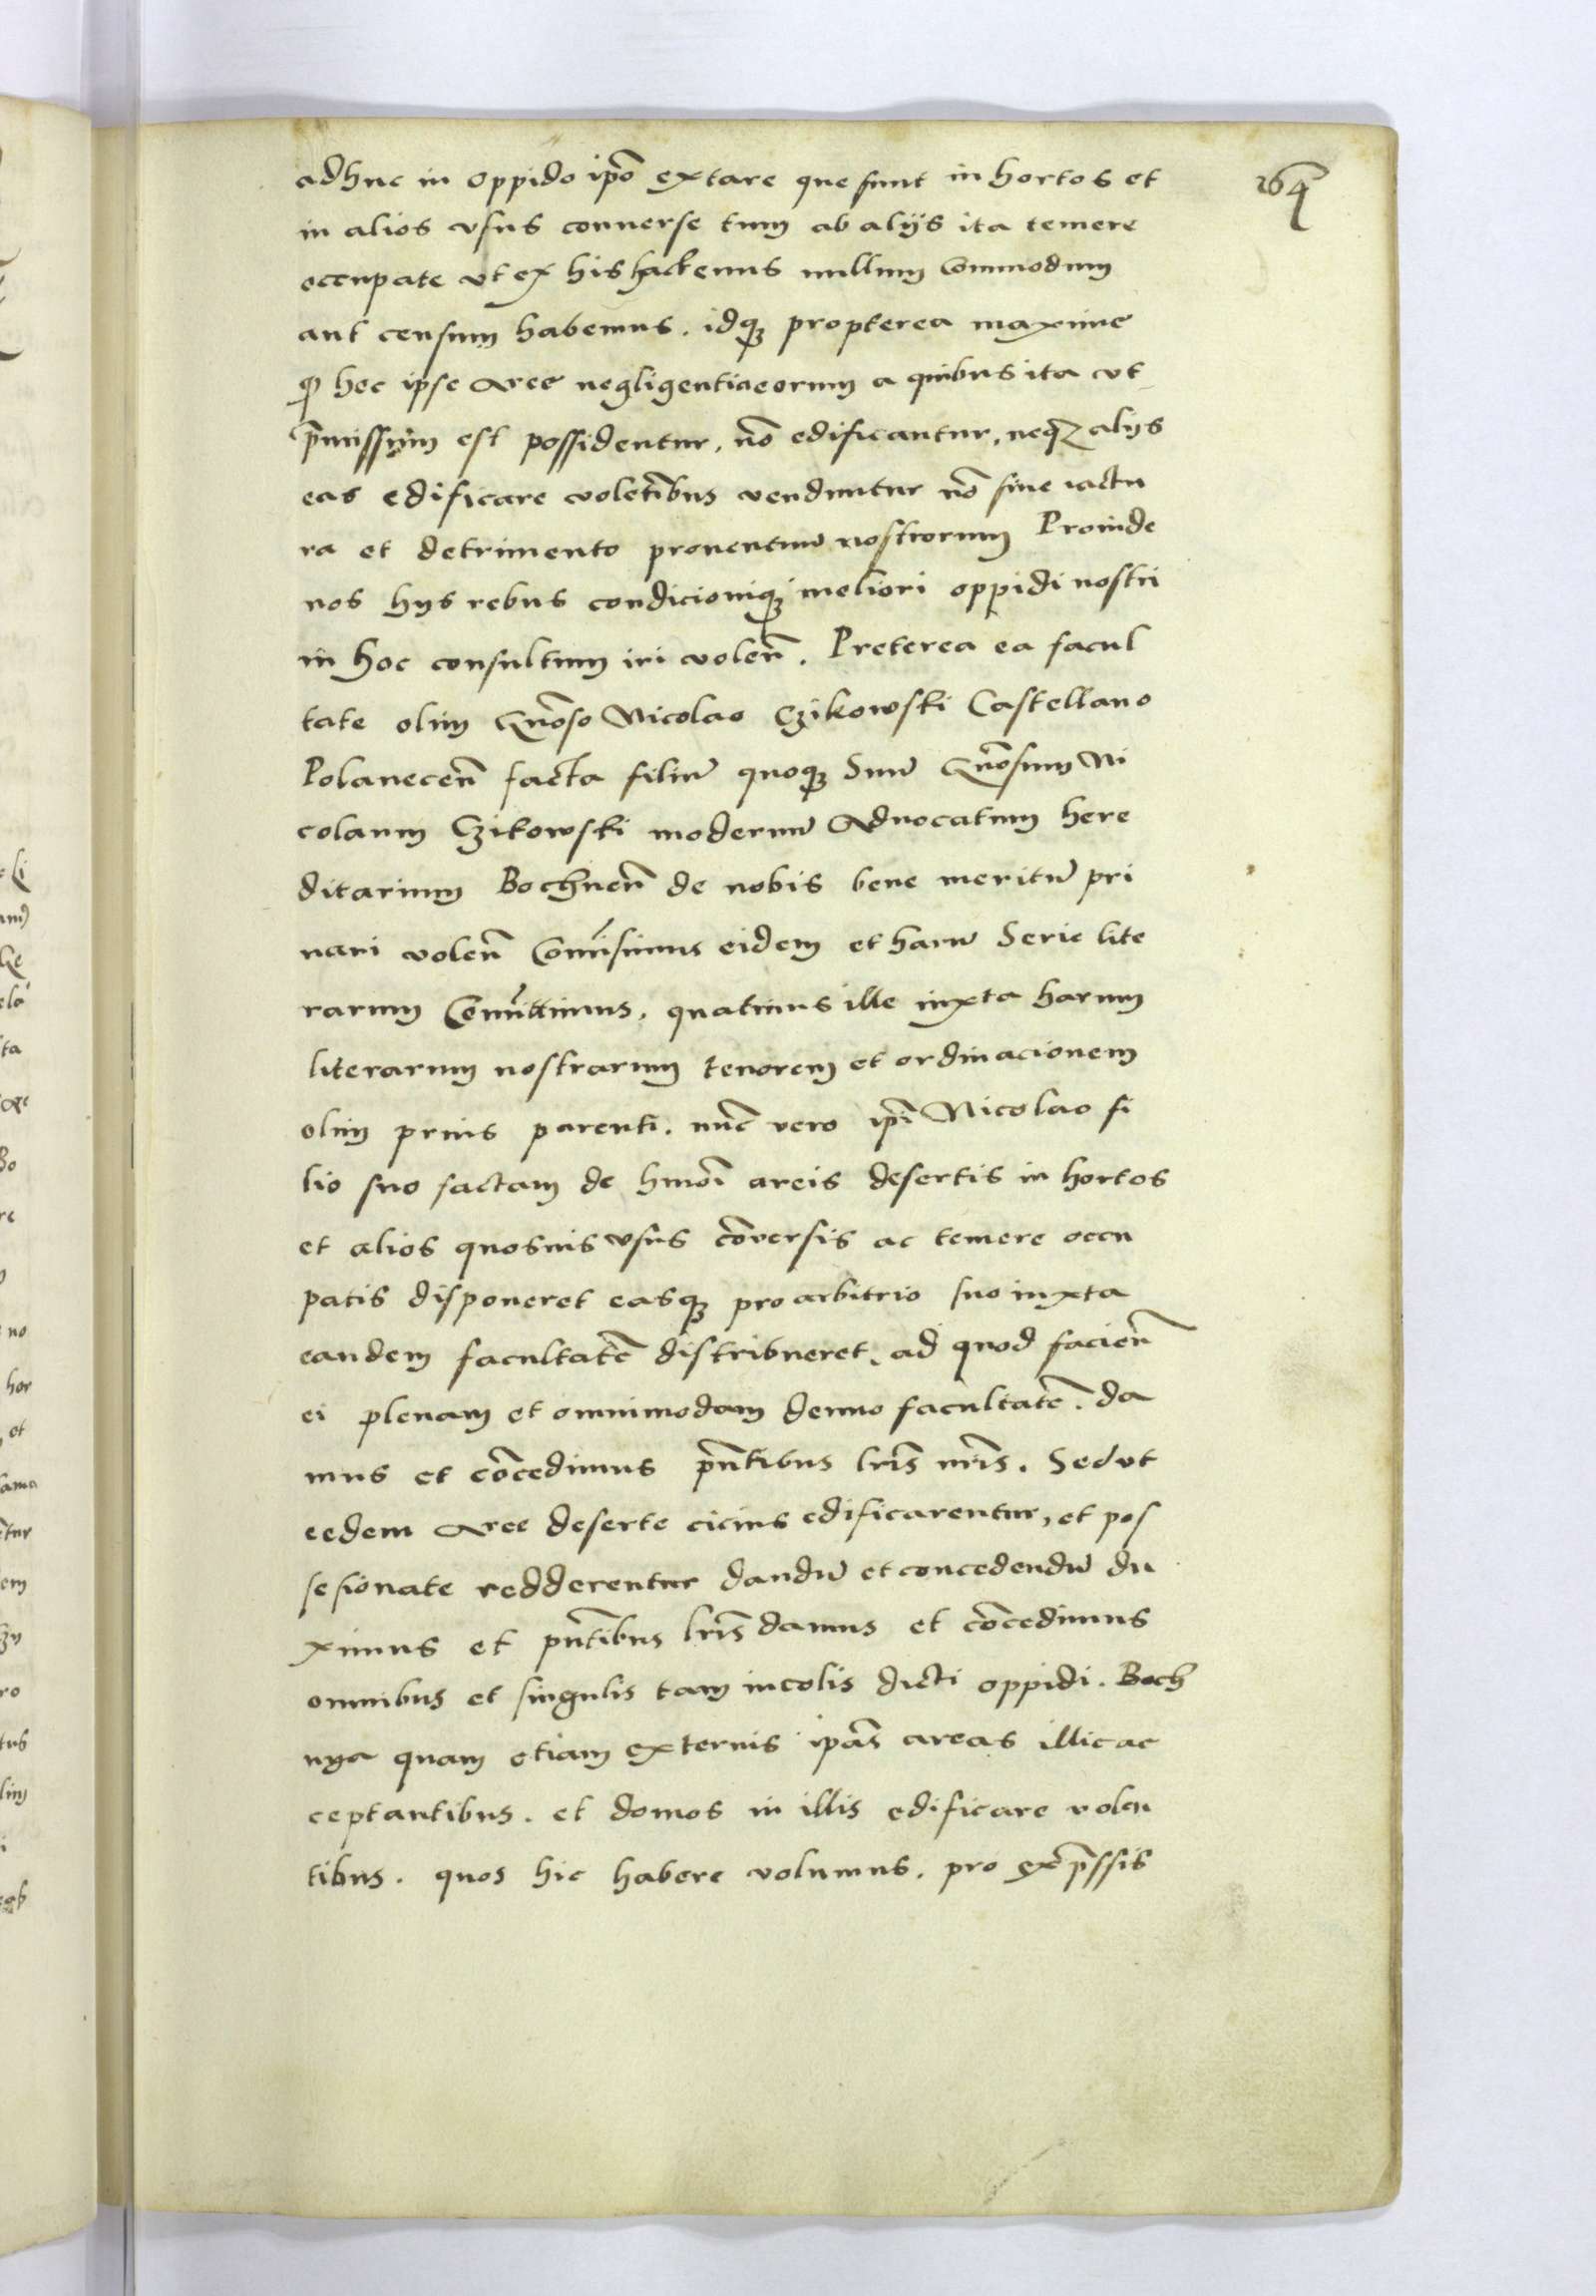 164
adhuc in oppido ip̃o extare que sunt in hortos et
in alios vsus conuerse tum ab alijs ita temere
occupate vt ex his hactenus nullum Commodum
aut censum habemus. idq; propterea maxime
ꝙ hec ipse aree negligentia eorum a quibus ita vt
p̃missum est possidentur, nõ edificantur, neq; alijs
eas edificare volẽtibus venduntur nõ sine iactu
ra et detrimento prouentuũ nostrorum Proinde
nos hijs rebus condicioniq; meliori oppidi nostri
in hoc consultum iri voleñ. Preterea ea facul
tate olim Gñoso Nicolao Czikowski Castellano
Polaneceñ facta filiũ quoq; Suũ Gñosum Ni
colaum Czikowski modernũ Aduocatum here
ditarium Bochneñ de nobis bene meritũ pri
uari voleñ Com̃isimus eidem et harũ Serie lite
rarum Com̃ittimus, quatinus ille iuxta harum
literarum nostrarum tenorem et ordinacionem
olim prius parenti. nũc vero ip̃i Nicolao fi
lio suo factam de hmõi areis desertis in hortos
et alios quosuis vsus cõversis ac temere occu
patis disponeret easq; pro arbitrio suo iuxta
eandem facultatẽ distribueret, ad quod facieñ
ei plenam et omnimodam denuo facultatẽ. da
mus et cõcedimus pñtibus lr̃is nr̃is. Sed vt
eedem aree deserte cicius edificarentur, et pos
sesionate redderentur dandũ et concedendũ du
ximus et pñtibus lr̃is damus et cõcedimus
omnibus et singulis tam incolis dicti oppidi. Boch
nya quam etiam externis ip̃as areas illic ac
ceptantibus. et domos in illis edificare volen
tibus. quos hic habere volumus. pro exp̃ssis